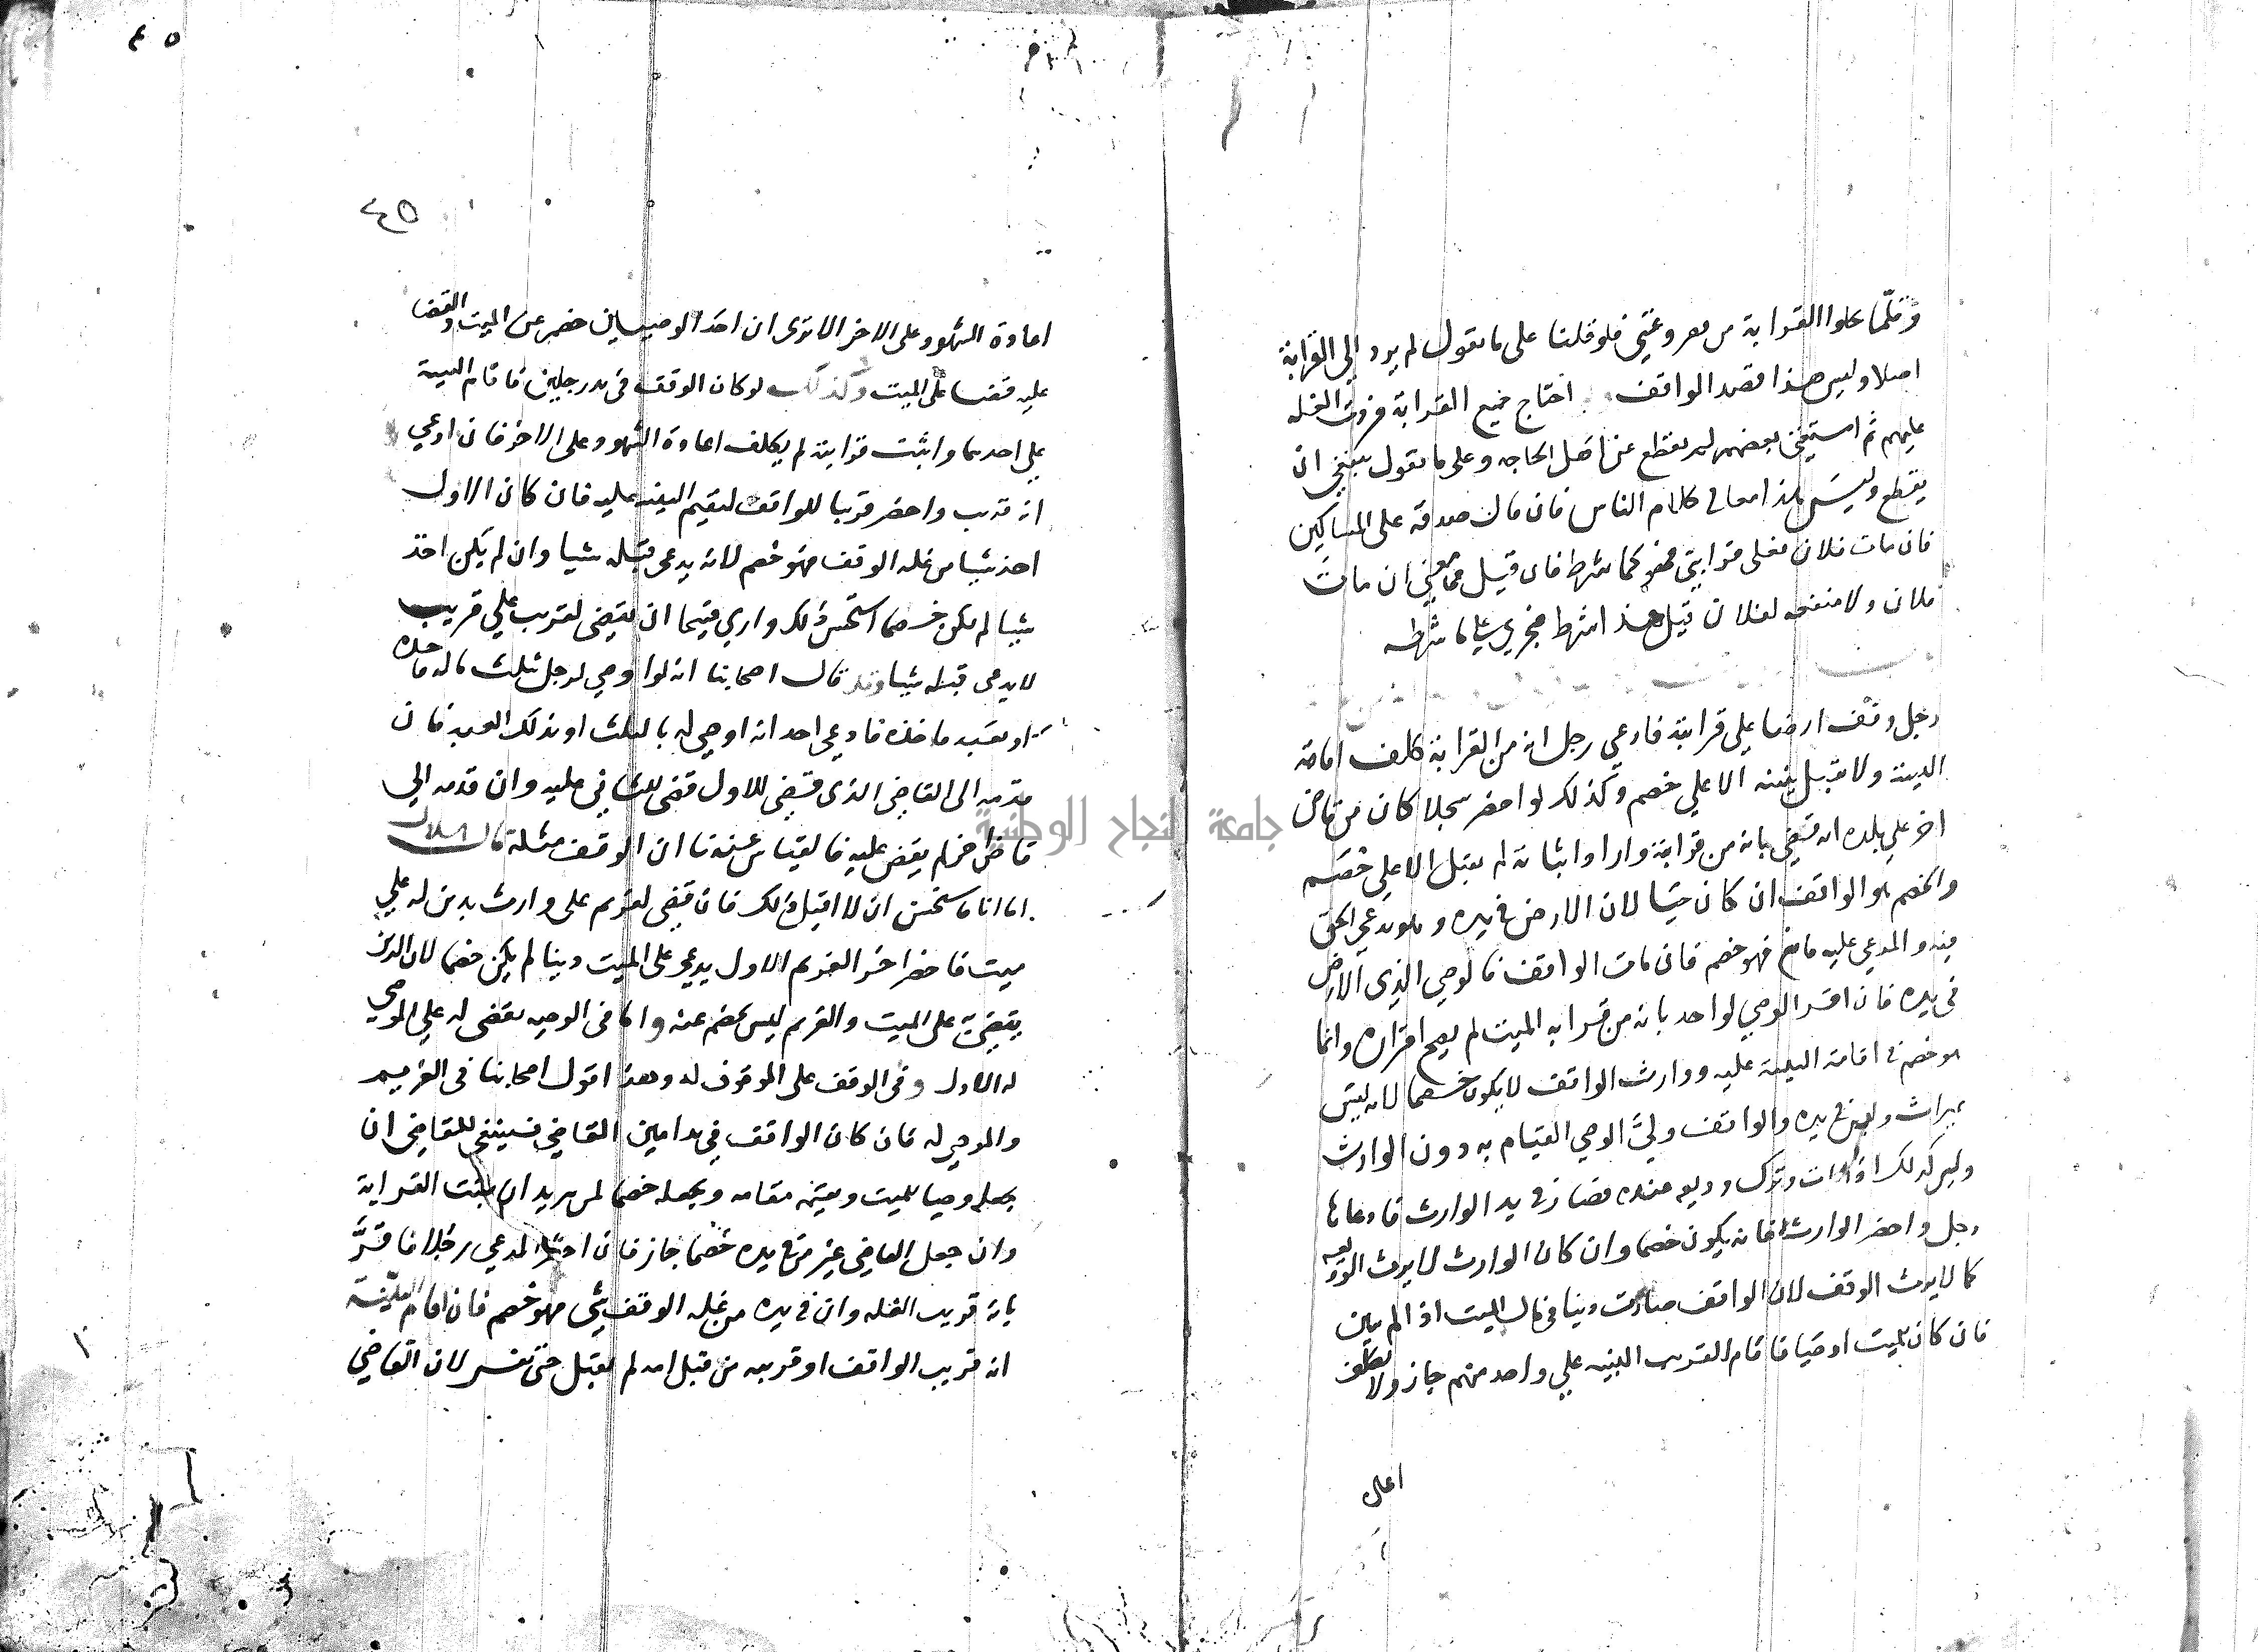 وقلما علوا القرابة من معر وغني فلو قلنا على ما تقول لم يرد الى القرابة
اصلا وليس هذا قصد الواقف احتاج جميع القرابة فردت الغله
عليهم ثم استغنى بعضهم لم يقطع عن اهل الحاجه وعلى ما تقول ينبغي ان
يقطع وليس هذا معاني كلام الناس فان قال صدقة على المساكين
فان مات فلان فعلى قرابتي فهو كما شرط فان قيل فما معنى ان مات
فلان ولا منفعه لفلان قيل هذا شرط فيجري على ما شرطه
رجل وقف ارضا على قرابته فادعى رجل انه من القرابة كلف اقامة
البينة ولا تقبل بينته الا على خصم وكذلك لو احضر سجلا كان من قاض
اخر على بلده انه قضى بانه من قرابته واراد اثباته لم يقبل الا على خصم
والخصم هو الواقف ان كان حيا لان الارض في يده وهو يدعي الحق
فيه والمدعي عليه مانع فهو خصم فان مات الواقف فالوصي الذي الارض
في يده فان اقر الوصي لواحد بانه من قرابه الميت لم يصح اقراره وانما
هو خصم في اقامة البينة عليه ووارث الواقف لا يكون خصما لانه ليس
بميراث وليس في يده والواقف ولى الوصي القيام به دون الوارث
وليس كذلك اذا مات وترك وديعه عنده فصار في يد الوارث فادعاها
رجل واحضر الوارث فانه يكون خصما وان كان الوارث لا يرث الوديعه
كما لا يرث الوقف لان الواقف صارت دينا في مال الميت اذا لم يبين
فان كان للميت اوصيا فاقام القريب البينه على واحد منهم جاز ولا يكلف
اعاده
٤٥
٤٥
اعادة الشهود على الاخر الا ترى ان احد الوصيين خصم عن الميت والقضا
عليه قضا على الميت وكذلك لو كان الوقف في يد رجلين فاقام البينة
على احدهما واثبت قرابته لم يكلف اعادة الشهود على الاخر فان ادعى
انه قريب واحضر قريبا للواقف ليقيم البينه عليه فان كان الاول
اخذ شيا من غله الوقف فهو خصم لانه يدعي قبله شيا وان لم يكن اخذ
شيا لم يكن خصما استحسن ذلك وارى قبيحا ان يقضي لقريب على قريب
لا يدعي قبله شيا وقد قال اصحابنا انه لو اوصى لرجل بثلث ماله فاخذه
او بعبد فاخذه فادعى احد انه اوصى له بالثلث او بذلك العبد فان
قدمه الى القاضي الذي قضى للاول قضى للثاني عليه وان قدمه الى
قاض اخر لم يقض عليه فالقياس عندنا ان الوقف مثله قال هلال
اما انا فاستحسن ان لا اقبل ذلك فان قضى لغريم على وارث بدين له على
ميت فاحضر اخر الغريم الاول يدعي على الميت دينا لم يكن خصما لان الدين
يقضى به على الميت والغريم ليس بخصم عنه واما في الوصيه يقضى له على الموصي
له الاول وفي الوقف على الموقوف له وهذا قول اصحابنا في الغريم
والموصى له فان كان الواقف في يد امين القاضي فينبغي للقاضي ان
يجعله وصيا للميت ويقيمه مقامه ويجعله خصما لمن يريد ان يثبت القرابة
وان جعل القاضي غير من في يده خصما جاز فان احضر المدعي رجلا فاقر
بانه قريب الغله وان في يده من غله الوقف شي فهو خصم فان اقام البينة
انه قريب الواقف او قريبه من قبل امه لم يقبل حتى يفسر لان القاضي
جامعة النجاح الوطنية